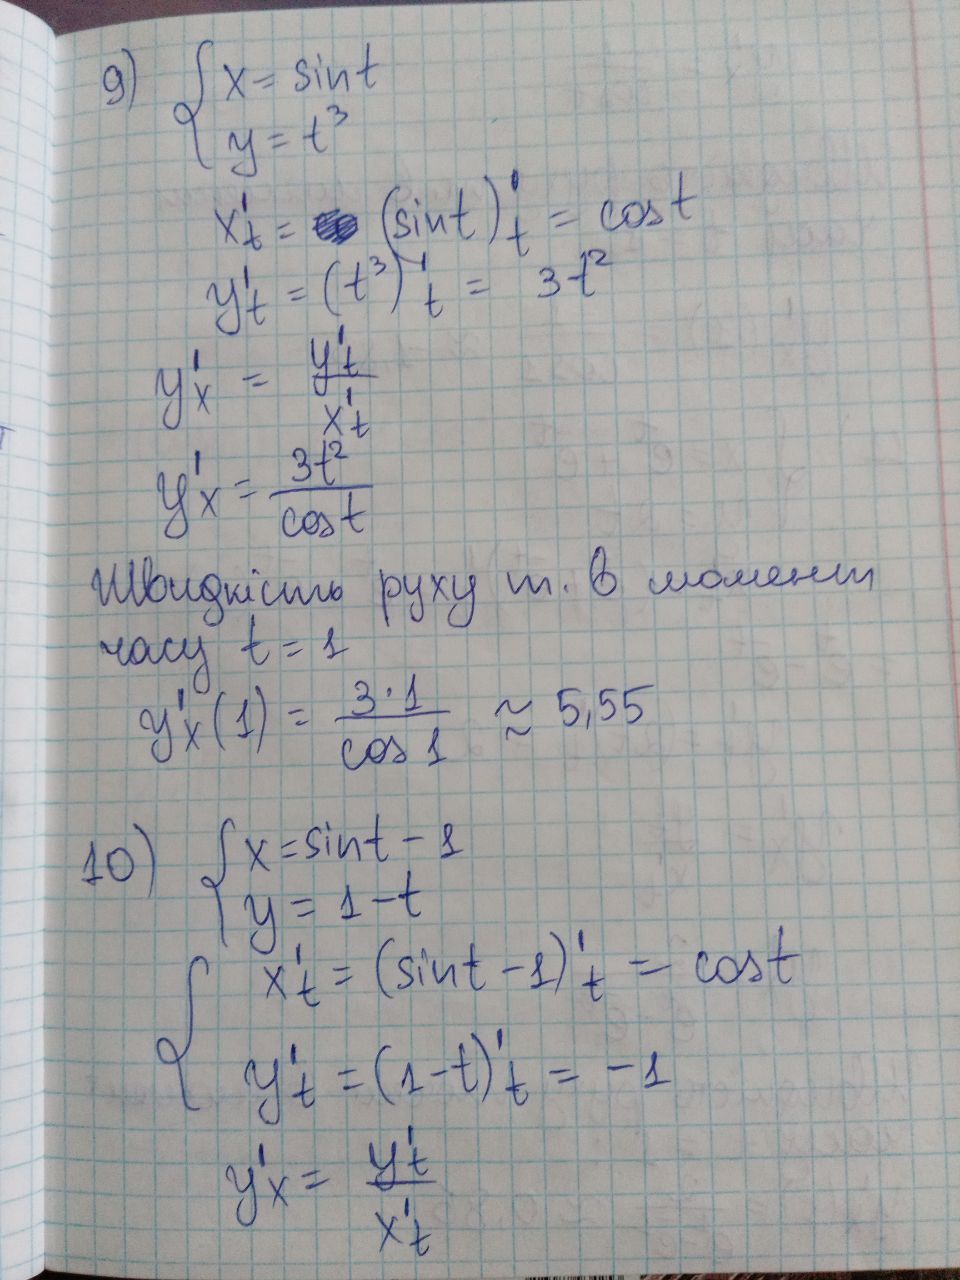 9) { x = sint
y = t³
x't = (sint)'t = cost
y't = (t³)'t = 3t²
y'x = y't / x't
y'x = 3t² / cost
Швидкість руху т. в момент
часу t = 1
y'x(1) = 3·1 / cos1 ≈ 5,55
10) { x = sint - 1
y = 1 - t
{ x't = (sint - 1)'t = cost
y't = (1-t)'t = -1
y'x = y't / x't